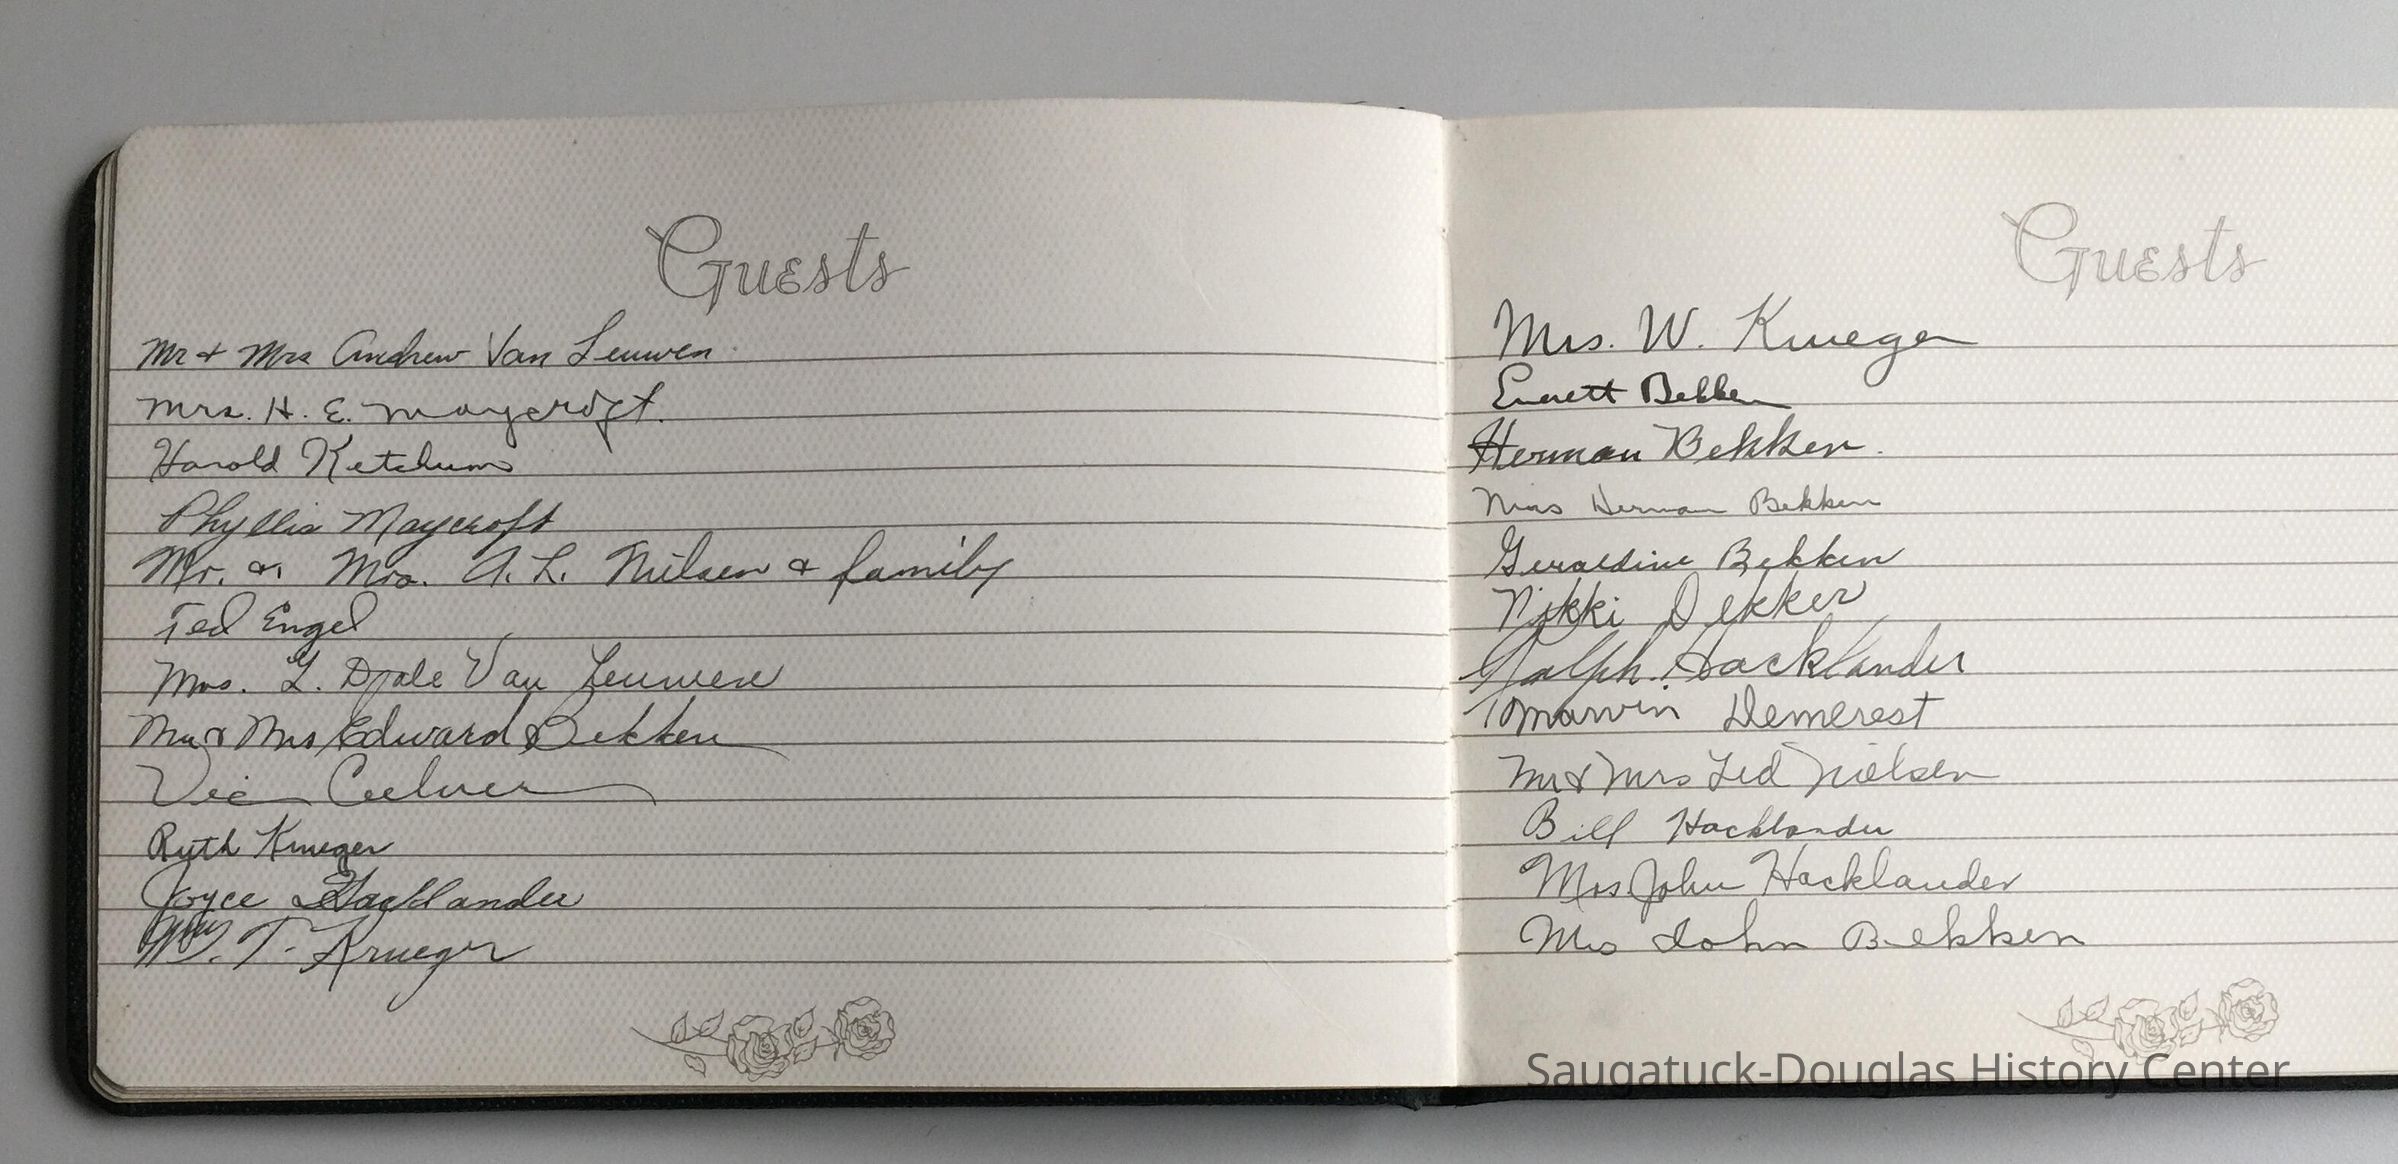 Guests
Mr + Mrs Andrew Van Leuwen
Mrs. H. E. Maycroft.
Harold Ketchum
Phyllis Maycroft
Mr. & Mrs. A. L. Nilsen & family
Ted Engel
Mrs. L. Dale Van Leuwen
Mr & Mrs Edward Bekken
Vic
Ruth Krueger
Joyce Hacklander
Wm. T. Krueger
Guests
Mrs. W. Krueger
Everett Bekken
Herman Bekken.
Mrs Herman Bekken
Geraldine Bekken
Nikki Dekker
Ralph Hacklander
Marvin Demerest
Mr & Mrs Ted Nielsen
Bill Hacklander
Mrs John Hacklander
Mrs John Bekken
Saugatuck-Douglas History Center